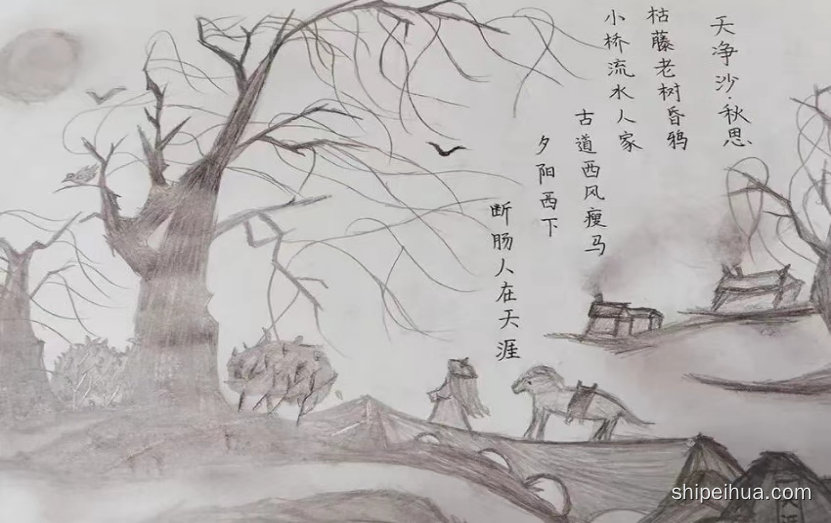 天净沙秋思
枯藤老树昏鸦
小桥流水人家
古道西风瘦马
夕阳西下
断肠人在天涯
shipeihua.com